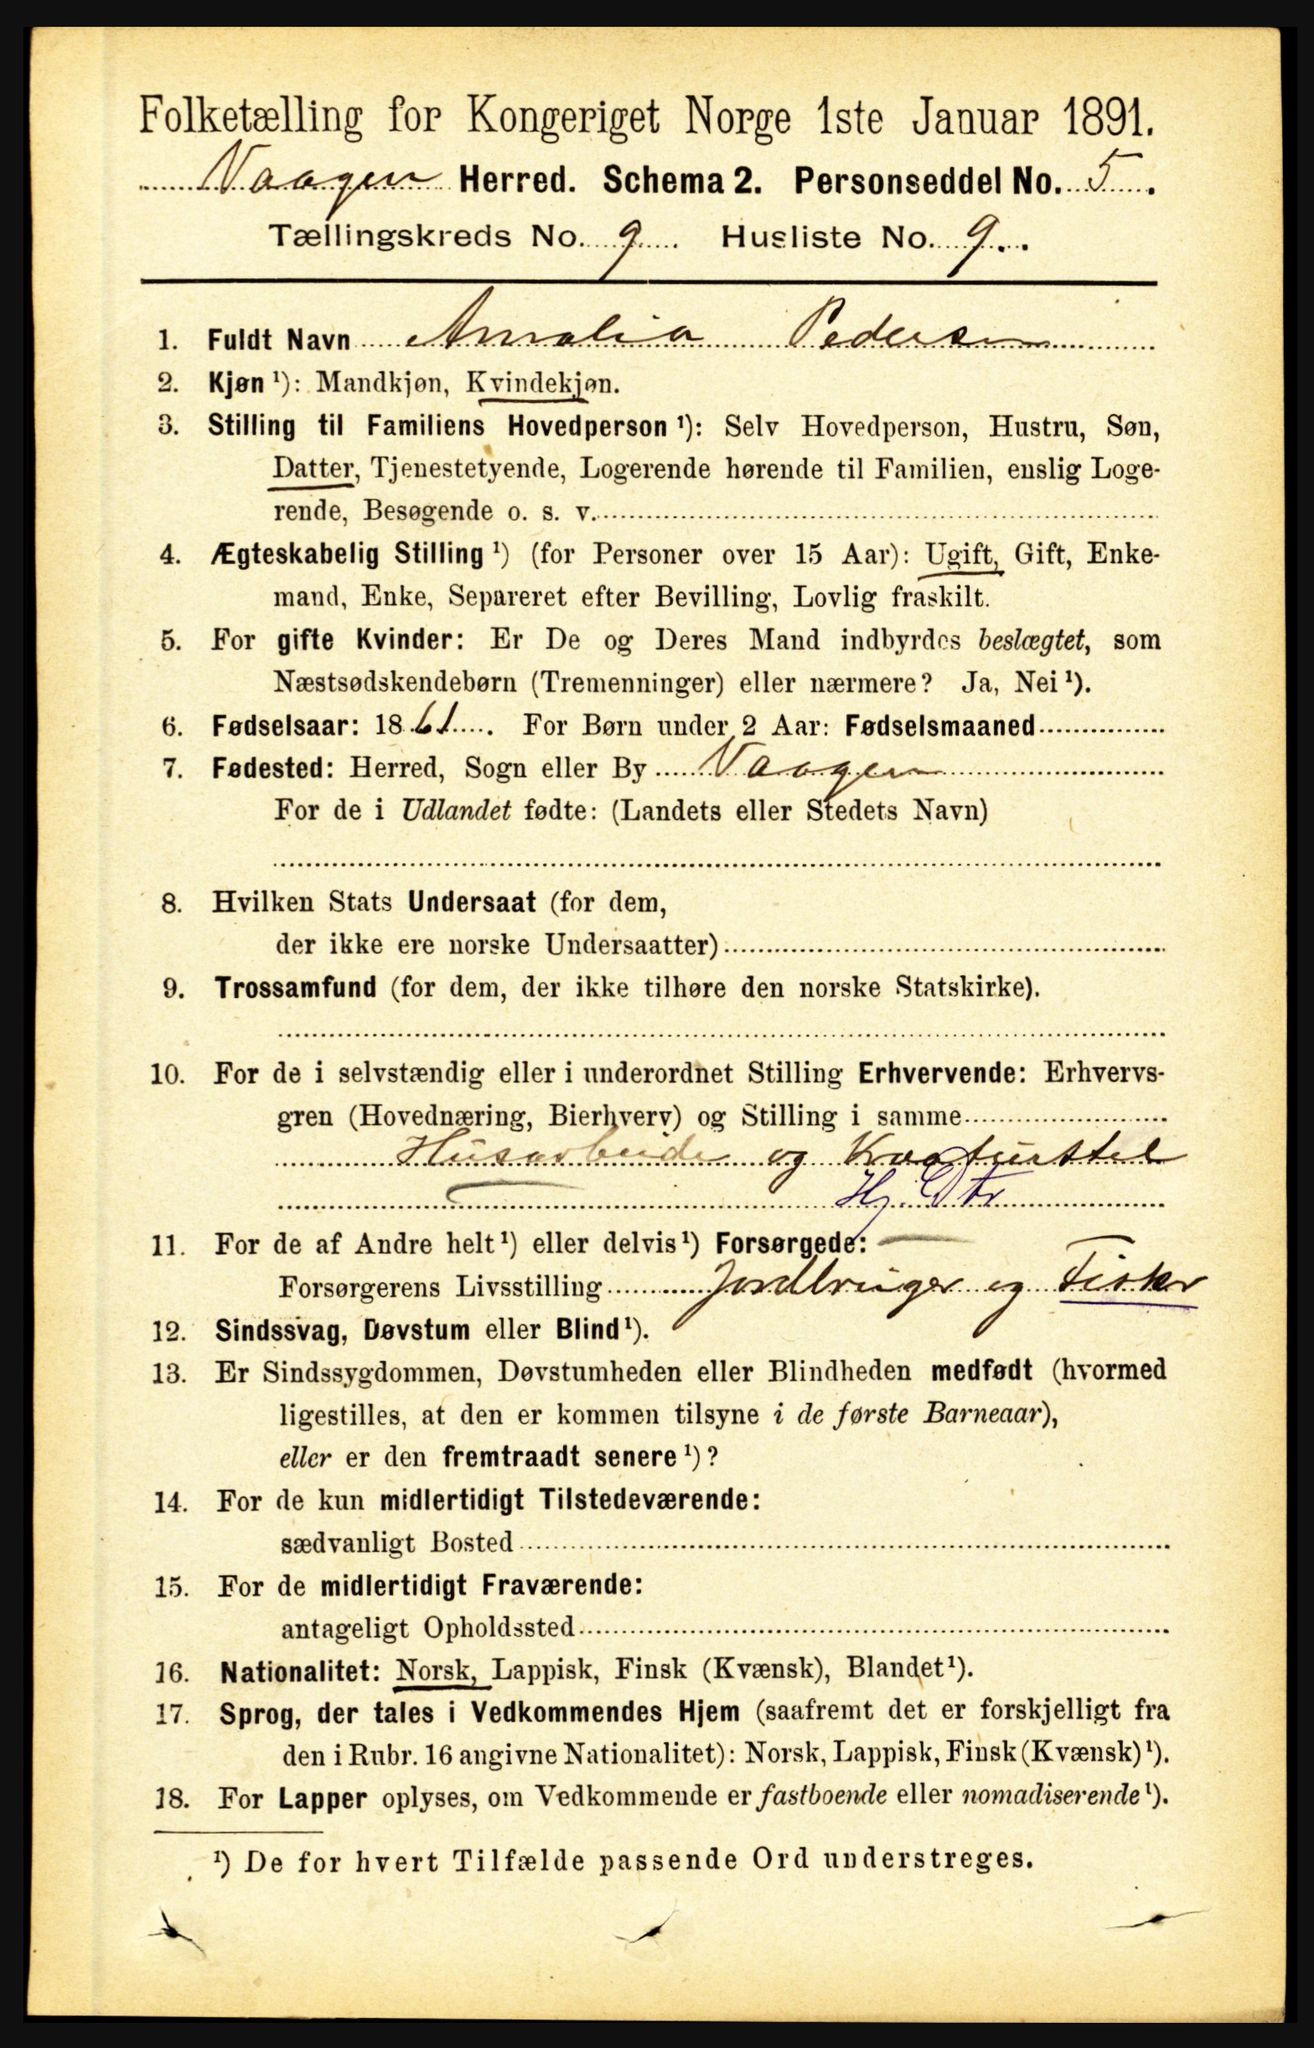 Folketælling for Kongeriget Norge 1ste Januar 1891.
Vaagen Herred. Schema 2. Personseddel No. 5.
Tællingskreds No. 9. Husliste No. 9.
1. Fuldt Navn Amalia Pedersen
2. Kjøn ¹): Mandkjøn, Kvindekjøn.
3. Stilling til Familiens Hovedperson ¹): Selv Hovedperson, Hustru, Søn,
Datter, Tjenestetyende, Logerende hørende til Familien, enslig Loge-
rende, Besøgende o. s. v.
4. Ægteskabelig Stilling ¹) (for Personer over 15 Aar): Ugift, Gift, Enke-
mand, Enke, Separeret efter Bevilling, Lovlig fraskilt.
5. For gifte Kvinder: Er De og Deres Mand indbyrdes beslægtet, som
Næstsødskendebørn (Tremenninger) eller nærmere? Ja, Nei ¹).
6. Fødselsaar: 1861. For Børn under 2 Aar: Fødselsmaaned
7. Fødested: Herred, Sogn eller By Vaagen
For de i Udlandet fødte: (Landets eller Stedets Navn)
8. Hvilken Stats Undersaat (for dem,
der ikke ere norske Undersaatter)
9. Trossamfund (for dem, der ikke tilhøre den norske Statskirke).
10. For de i selvstændig eller i underordnet Stilling Erhvervende: Erhvervs-
gren (Hovednæring, Bierhverv) og Stilling i samme
Husarbeide og Kreaturstel
Hj. Dtr
11. For de af Andre helt ¹) eller delvis ¹) Forsørgede:
Forsørgerens Livsstilling Jordbruger og Fisker
12. Sindssvag, Døvstum eller Blind ¹).
13. Er Sindssygdommen, Døvstumheden eller Blindheden medfødt (hvormed
ligestilles, at den er kommen tilsyne i de første Barneaar),
eller er den fremtraadt senere ¹)?
14. For de kun midlertidigt Tilstedeværende:
sædvanligt Bosted
15. For de midlertidigt Fraværende:
antageligt Opholdssted
16. Nationalitet: Norsk, Lappisk, Finsk (Kvænsk), Blandet ¹).
17. Sprog, der tales i Vedkommendes Hjem (saafremt det er forskjelligt fra
den i Rubr. 16 angivne Nationalitet): Norsk, Lappisk, Finsk (Kvænsk) ¹).
18. For Lapper oplyses, om Vedkommende er fastboende eller nomadiserende ¹).
¹) De for hvert Tilfælde passende Ord understreges.